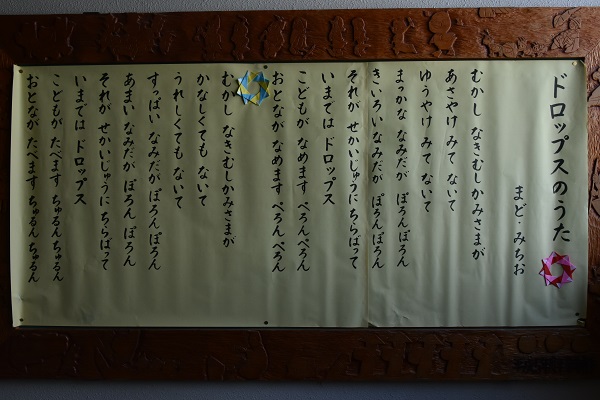 ドロップスのうた
まど・みちお
むかし なきむしかみさまが
あさやけ みて ないて
ゆうやけ みて ないて
まっかな なみだが ぽろんぽろん
きいろい なみだが ぽろんぽろん
それが せかいじゅうに ちらばって
いまでは ドロップス
こどもが なめます ぺろんぺろん
おとなが なめます ぺろんぺろん
むかし なきむしかみさまが
かなしくても ないて
うれしくても ないて
すっぱい なみだが ぽろんぽろん
あまい なみだが ぽろんぽろん
それが せかいじゅうに ちらばって
いまでは ドロップス
こどもが たべます ちゅるんちゅるん
おとなが たべます ちゅるんちゅるん